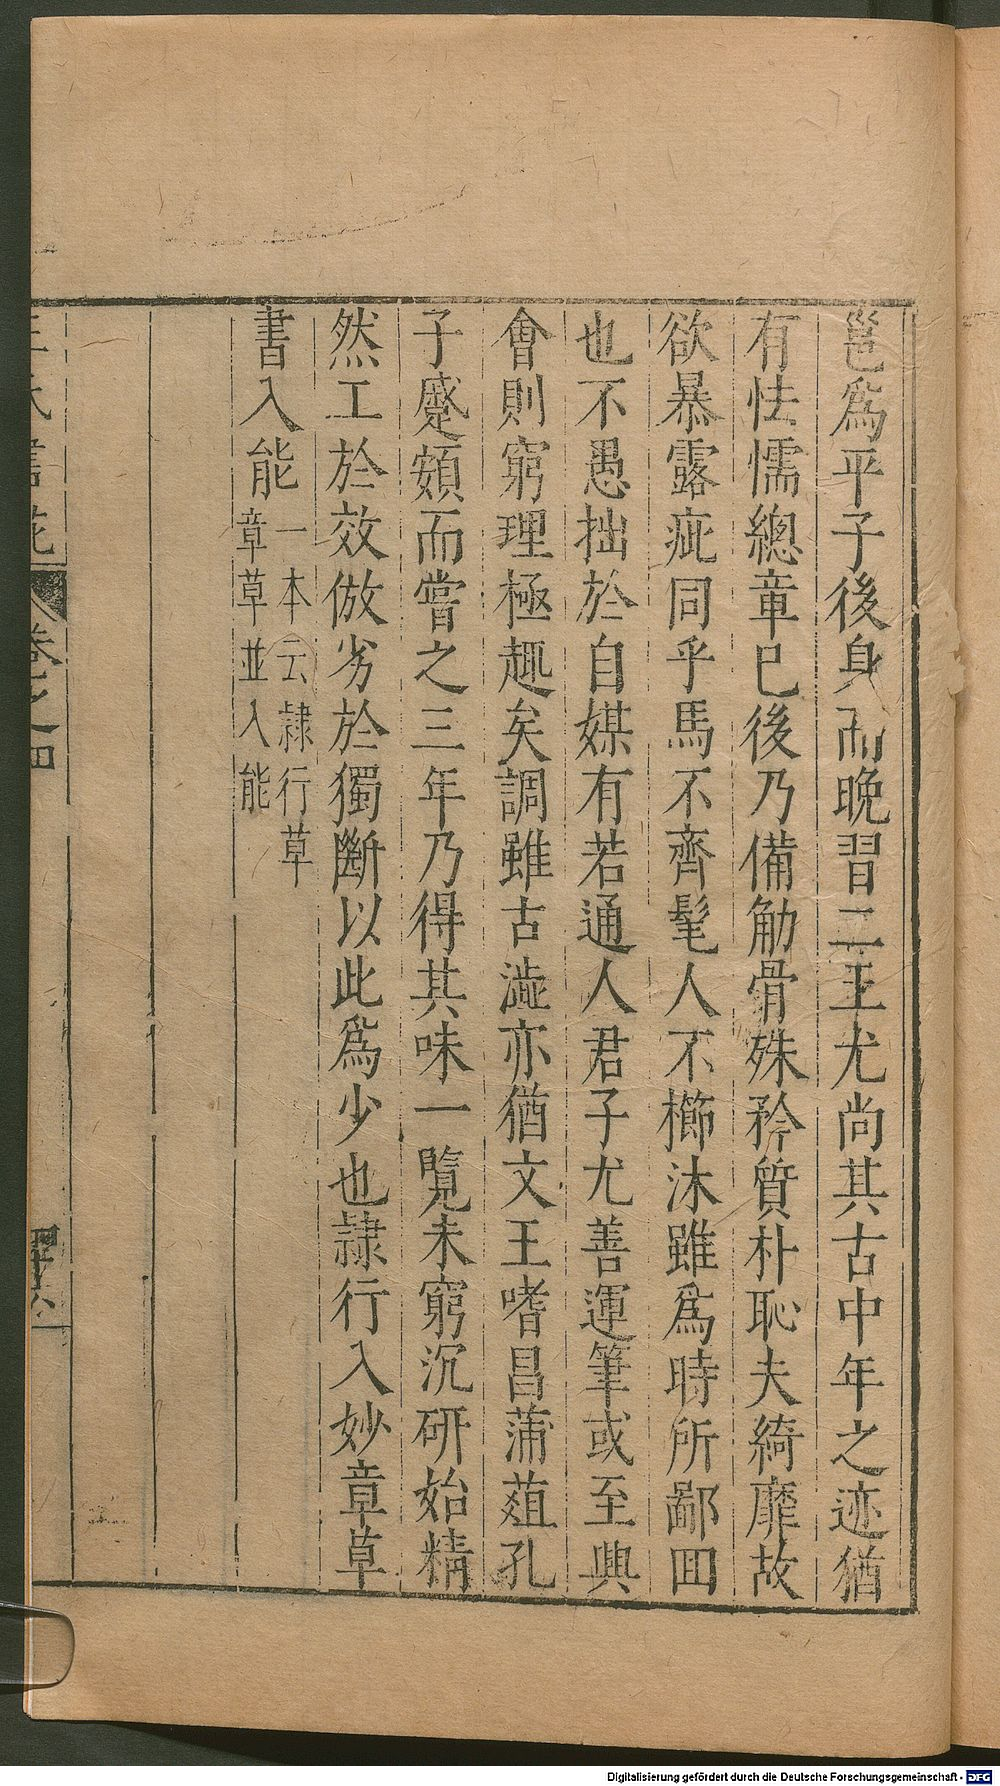 邕爲平子後身而晚習二王尤尚其古中年之迹猶
有怯懦總章已後乃備觔骨殊矜質朴恥夫綺靡故
欲暴露疵同乎馬不齊髦人不櫛沐雖爲時所鄙囬
也不愚拙於自媒有若通人君子尤善運筆或至興
會則窮理極趣矣調雖古澁亦猶文王嗜昌蒲葅孔
子蹙頞而嘗之三年乃得其味一覽未窮沉研始精
然工於效倣劣於獨斷以此爲少也隷行入妙章草
書入能
一本云隷行草
章草並入能
王氏書苑
卷之四
Digitalisierung gefördert durch die Deutsche Forschungsgemeinschaft - DFG